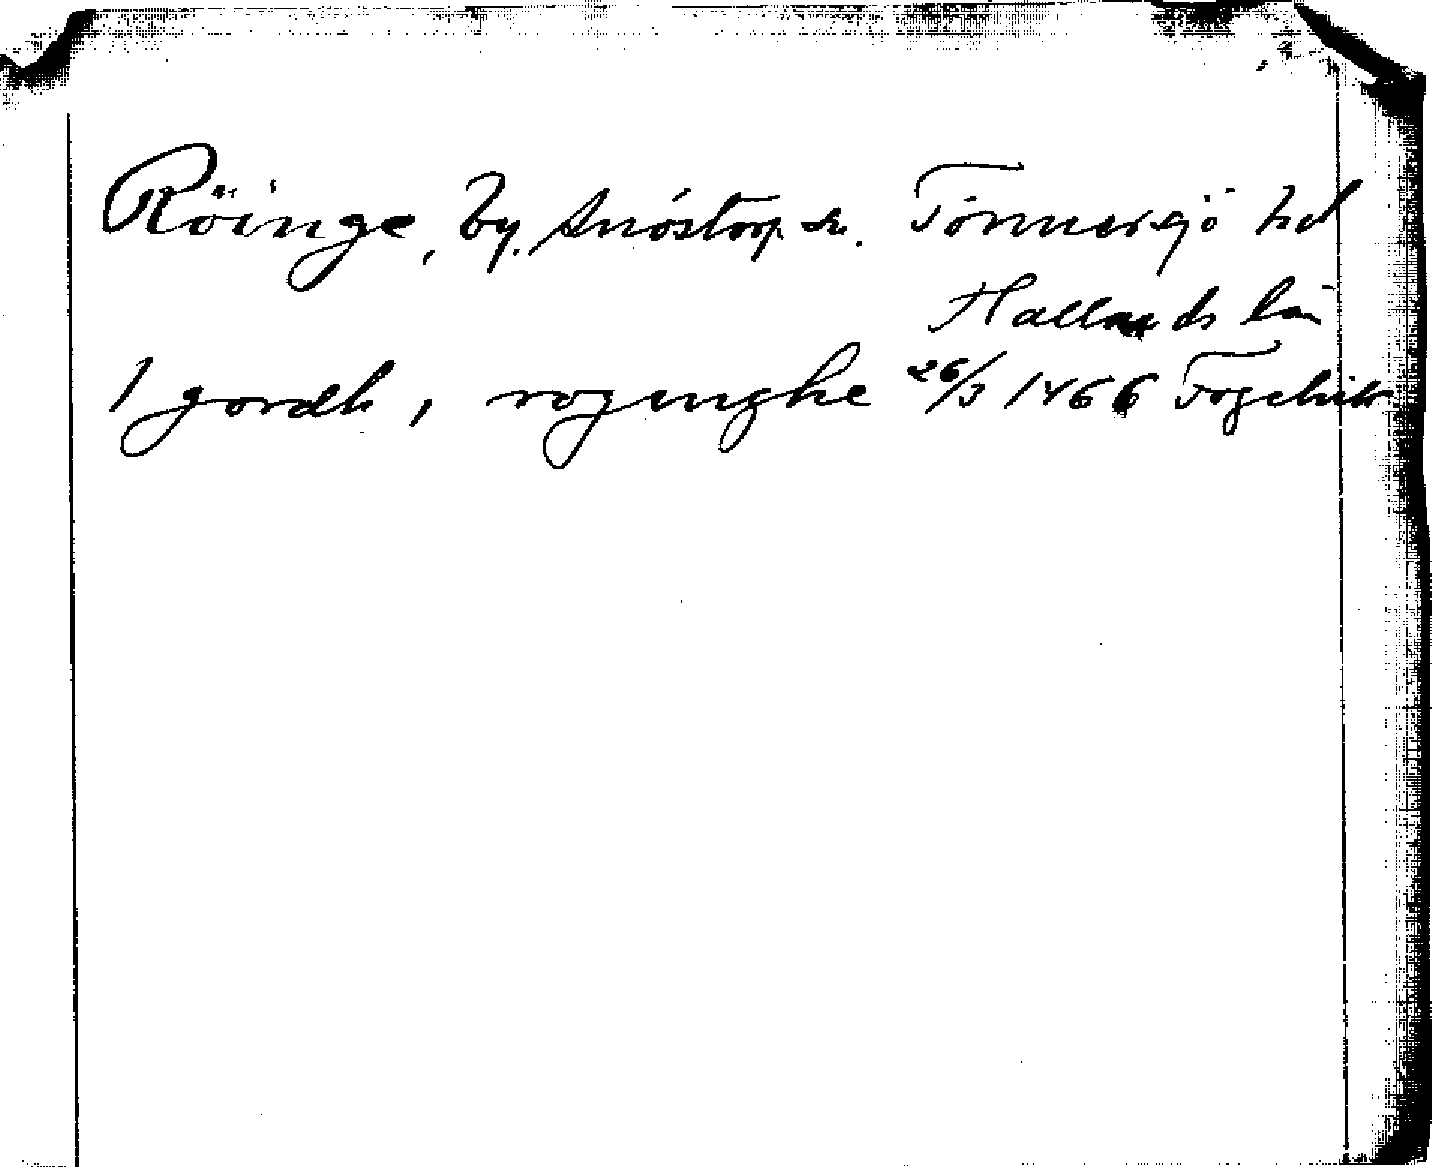 Röinge, by. Snöstorp sn. Tönnersjö hd
Hallands län
1 gordh, roginghe 26/3 1466 Fogelvik